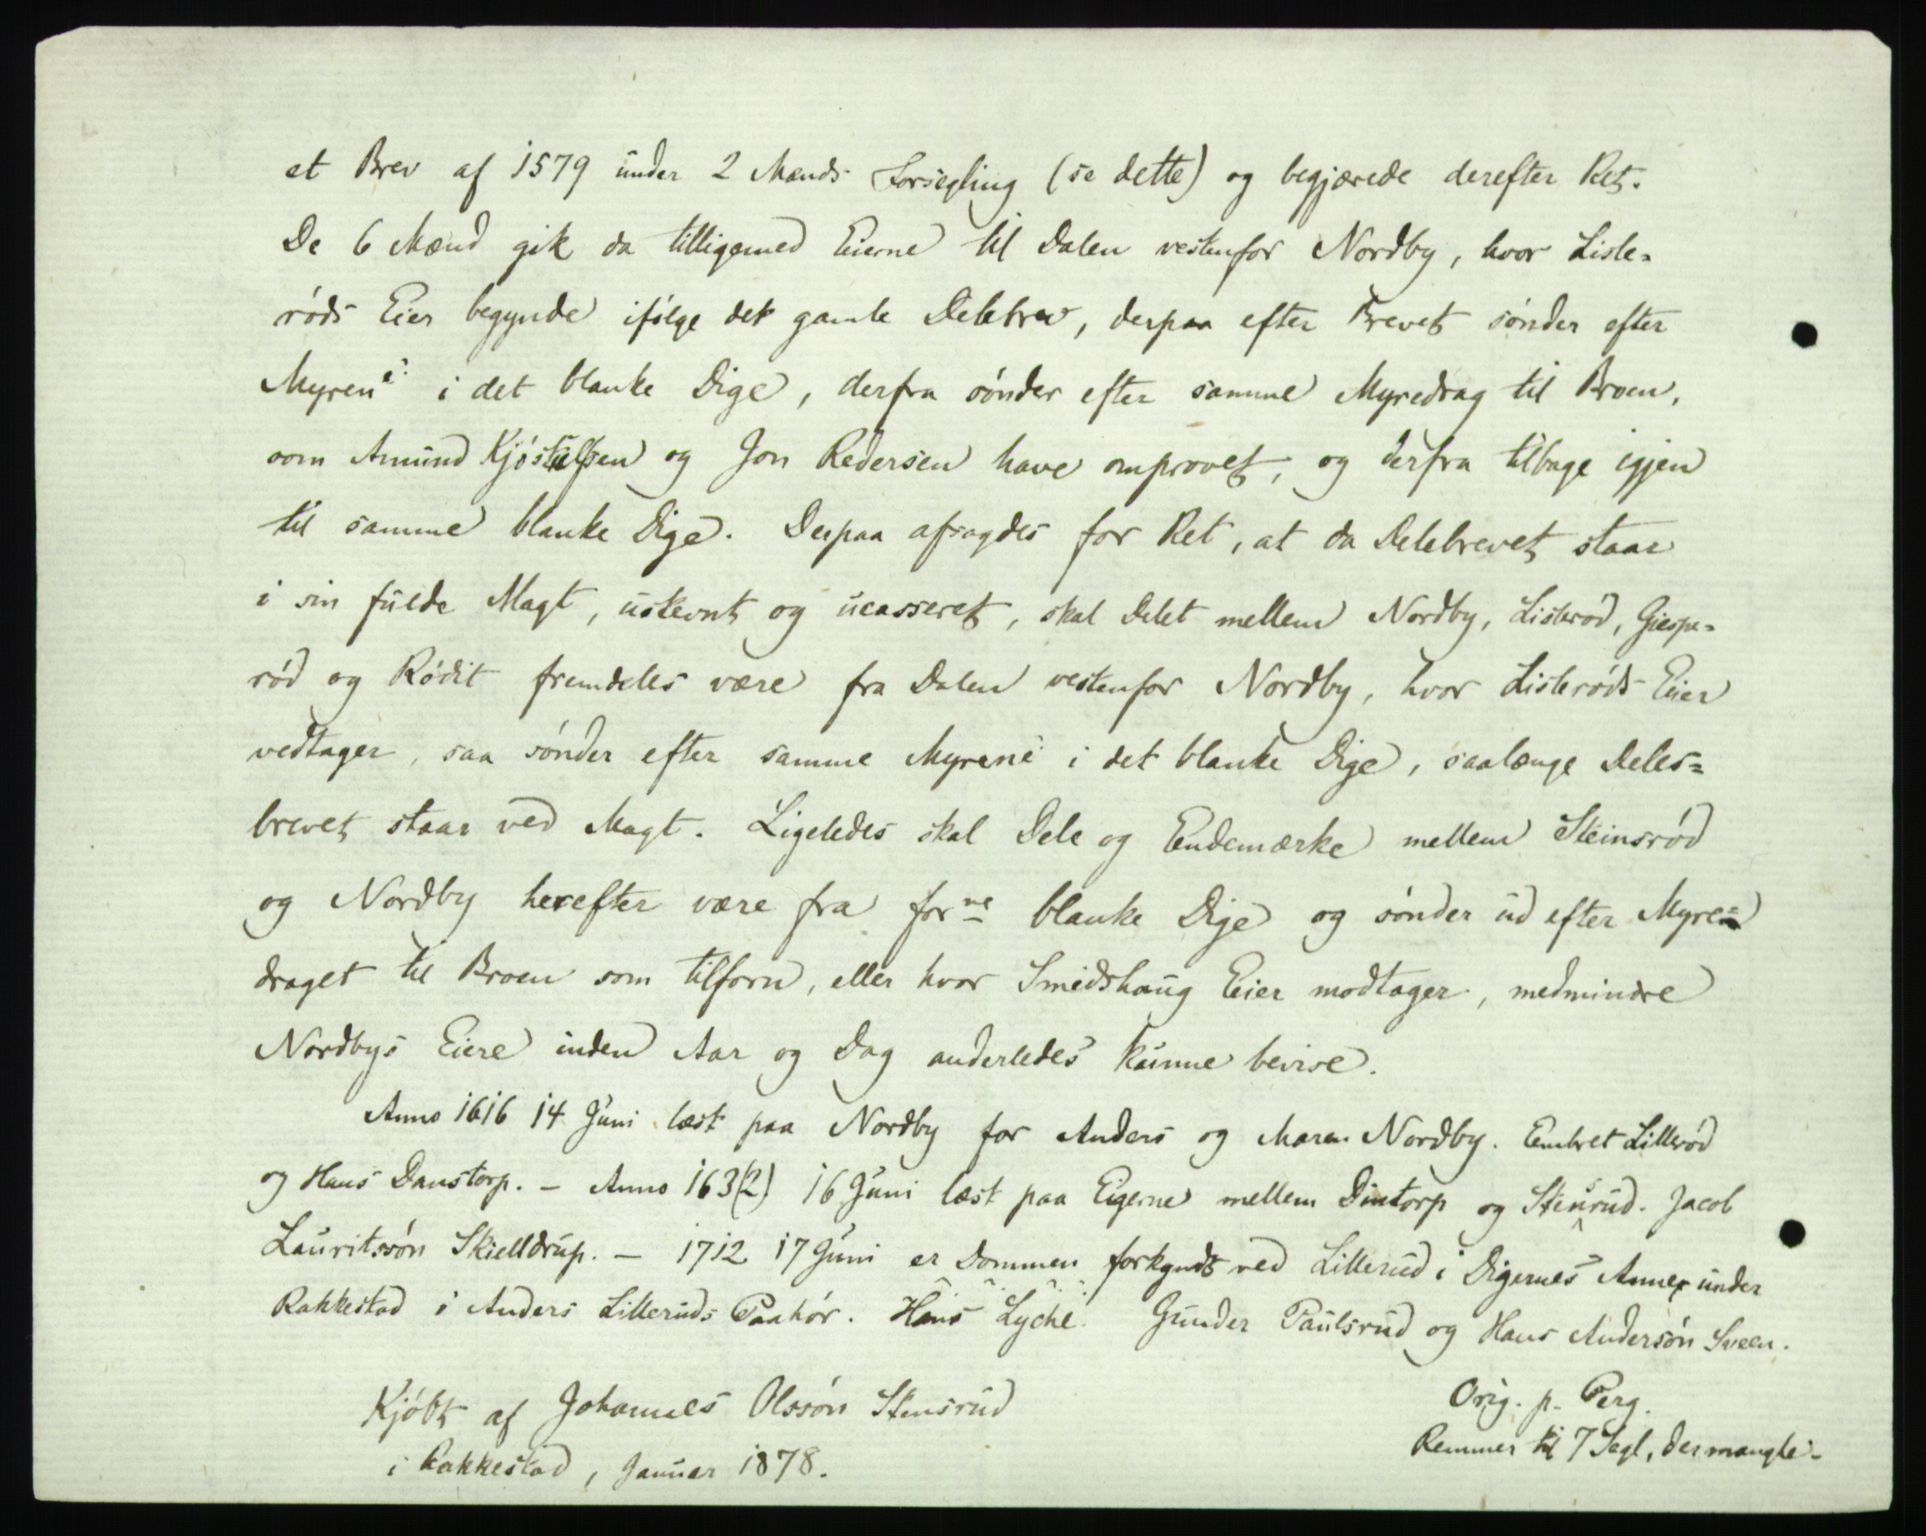 et Brev af 1579 under 2 Mænds Forsegling (se dette) og begjærede derefter Ret.
De 6 Mænd gik da tilligemed Eierne til Dalen vestenfor Nordby, hvor Liste=
røds Eier begynde ifølge det gamle Delebrev, derpaa efter Brevet sønder efter
Myrene i det blanke Dige, derfra sønder efter samme Myredrag til Broen,
som Amund Kjøstelsen og Jon Redersen have omprovet, og derfra tilbage igjen
til samme blanke Dige. Derpaa afsagdes for Ret, at da Delebrevet staar
i sin fulde Magt, uskevnt og ucasseret, skal Delet mellem Nordby, Listerød, Giespe=
rød og Rødit fremdeles være fra Dalen vestenfor Nordby, hvor Listerøds Eier
vedtager, saa sønder efter samme Myrene i det blanke Dige, saalænge Deles=
brevet staar ved Magt. Ligeledes skal Dele og Endemærke mellem Steinsrød
og Nordby herefter være fra forne blanke Dige og sønder ud efter Myre=
draget til Broen som tilforn, eller hvor Smedshaug Eier modtager, medmindre
Nordbys Eiere inden Aar og Dag anderledes kunne bevise.
Anno 1616 14 Juni læst paa Nordby for Anders og Maren Nordby. Embret Lillerød
og Hans Danstorp. – Anno 163(2) 16 Juni læst paa Eigerne mellem Dintorp og Stensrud. Jacob
Lauritssøn Skielldrup. – 1712 17 Juni er Dommen forkyndt ved Lillerud i Digernes Annex under
Rakkestad i Anders Lilleruds Paahør. Hans Lyche. Gunder Paulsrud og Hans Andersøn Sveen.
Kjøbt af Johannes Olssøn Stensrud
i Rakkestad, Januar 1878.
Orig. p. Perg.
Remmer til 7 Segl, der mangle.